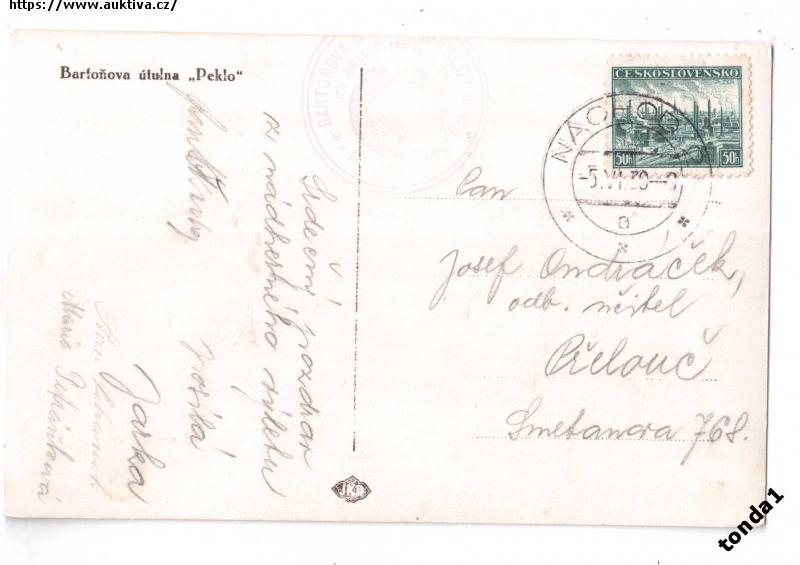 https://www.auktiva.cz/
Bartoňova útulna „Peklo"
BARTOŇOVA PEKLO"
ČESKOSLOVENSKO
PLZEŇ
50h 50h
NÁCHOD
-5.VI.39
a
Pan
Josef Ondráček,
odb. učitel
Přelouč
Smetanova 768.
Srdečný pozdrav
z nádherného výletu
posílá
Jarka
Marie Štěpánková
tonda1